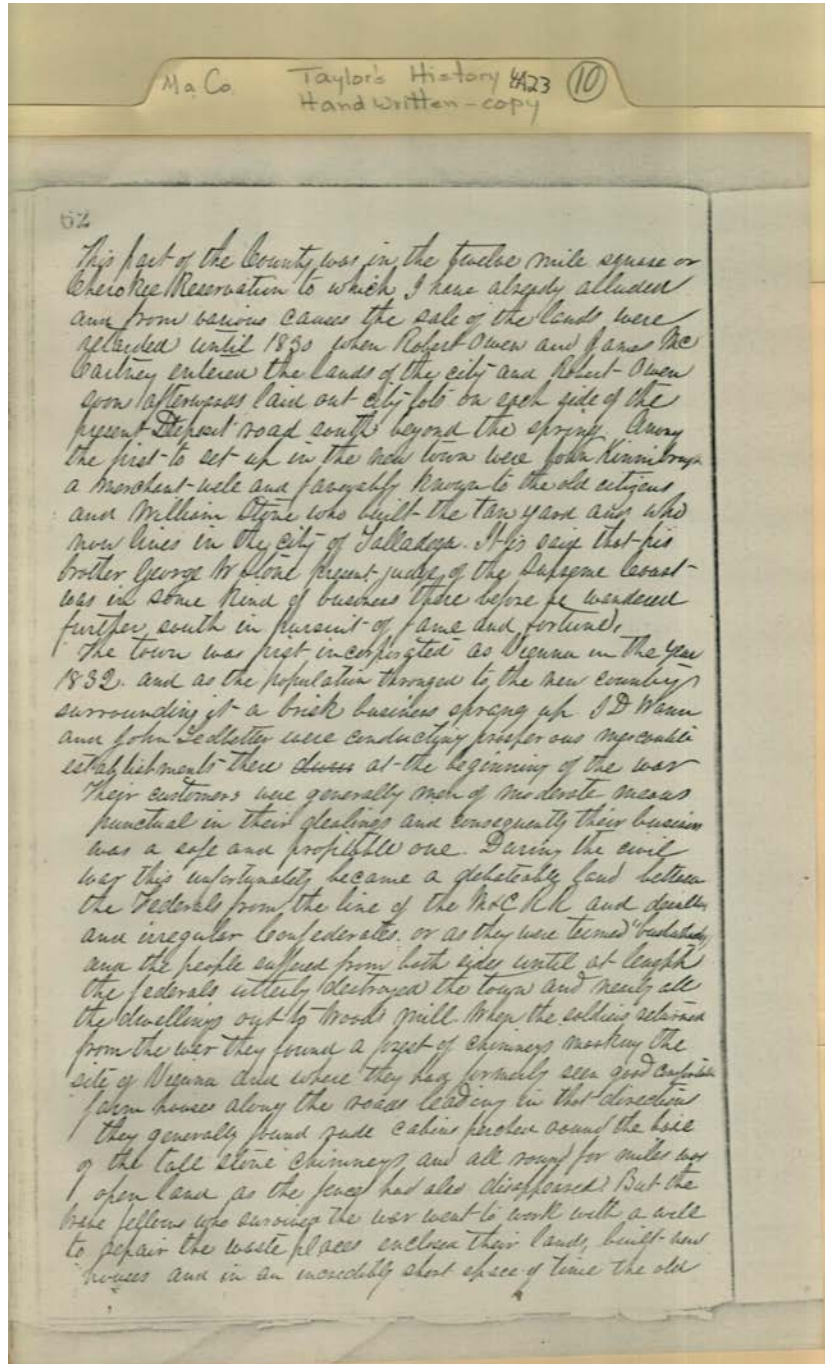 Ma. Co. Taylor's History 4A23 10
Hand written - copy
62
This part of the County was in the twelve mile square or
Cherokee Reservation to which I have already alluded
and from various causes the sale of the lands were
retarded until 1830 when Robert Owen and James Mc
Cartney entered the lands of the city and Robert Owen
soon afterwards laid out city lots on each side of the
present Deposit road south beyond the spring. Among
the first to set up in the new town were John Kinnibrugh
a merchant well and favorably known to the old citizens
and William Stone who built the tan yard and who
now lives in the city of Talladega. It is said that his
brother George W Stone present judge of the Supreme Court
was in some kind of business there before he wandered
further south in pursuit of fame and fortune.
The town was first incorporated as Vienna in the year
1832. and as the population thronged to the new country
surrounding it a brisk business sprang up. I D Wann
and John Ledbetter were conducting prosperous mercantile
establishments there at the beginning of the war
Their customers were generally men of moderate means
punctual in their dealings and consequently their business
was a safe and profitable one. During the civil
war this unfortunately became a debateable land between
the Federals from the line of the M & C R R and
and irregular Confederates. or as they were termed "
and the people suffered from both sides until at length
the federals utterly destroyed the town and nearly all
the dwellings out to Woods mill. When the soldiers returned
from the war they found a forest of chimneys marking the
site of Vienna and where they had formerly seen good comfortable
farm houses along the roads leading in that direction
they generally found rude cabins perched around the base
of the tall stone chimneys and all round for miles was
open land as the fences had also disappeared. But the
brave fellows who survived the war went to work with a will
to repair the waste places enclosed their lands, built new
houses and in an incredibly short space of time the old